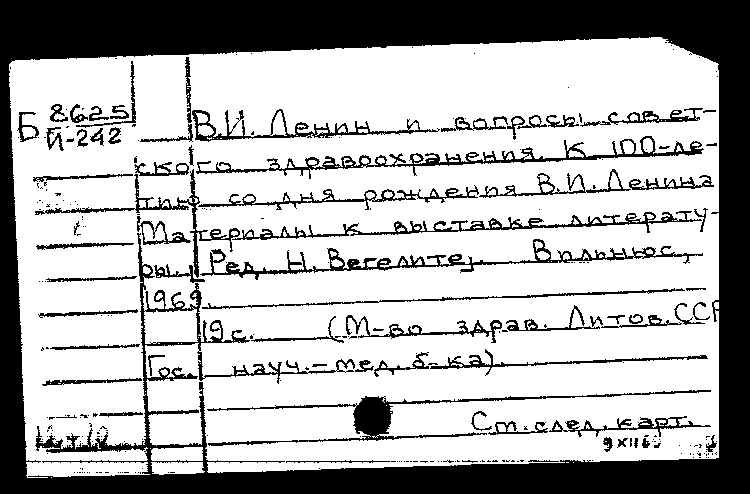 Б 8625
Й-242
В.И. Ленин и вопросы совет-
ского здравоохранения. К 100-ле-
тию со дня рождения В.И. Ленина
Материалы к выставке литерату-
ры. Ред. Н. Вегелите. Вильнюс,
1969.
19 с. (М-во здрав. Литов. ССР
Гос. науч.-мед. б-ка).
См. след. карт.